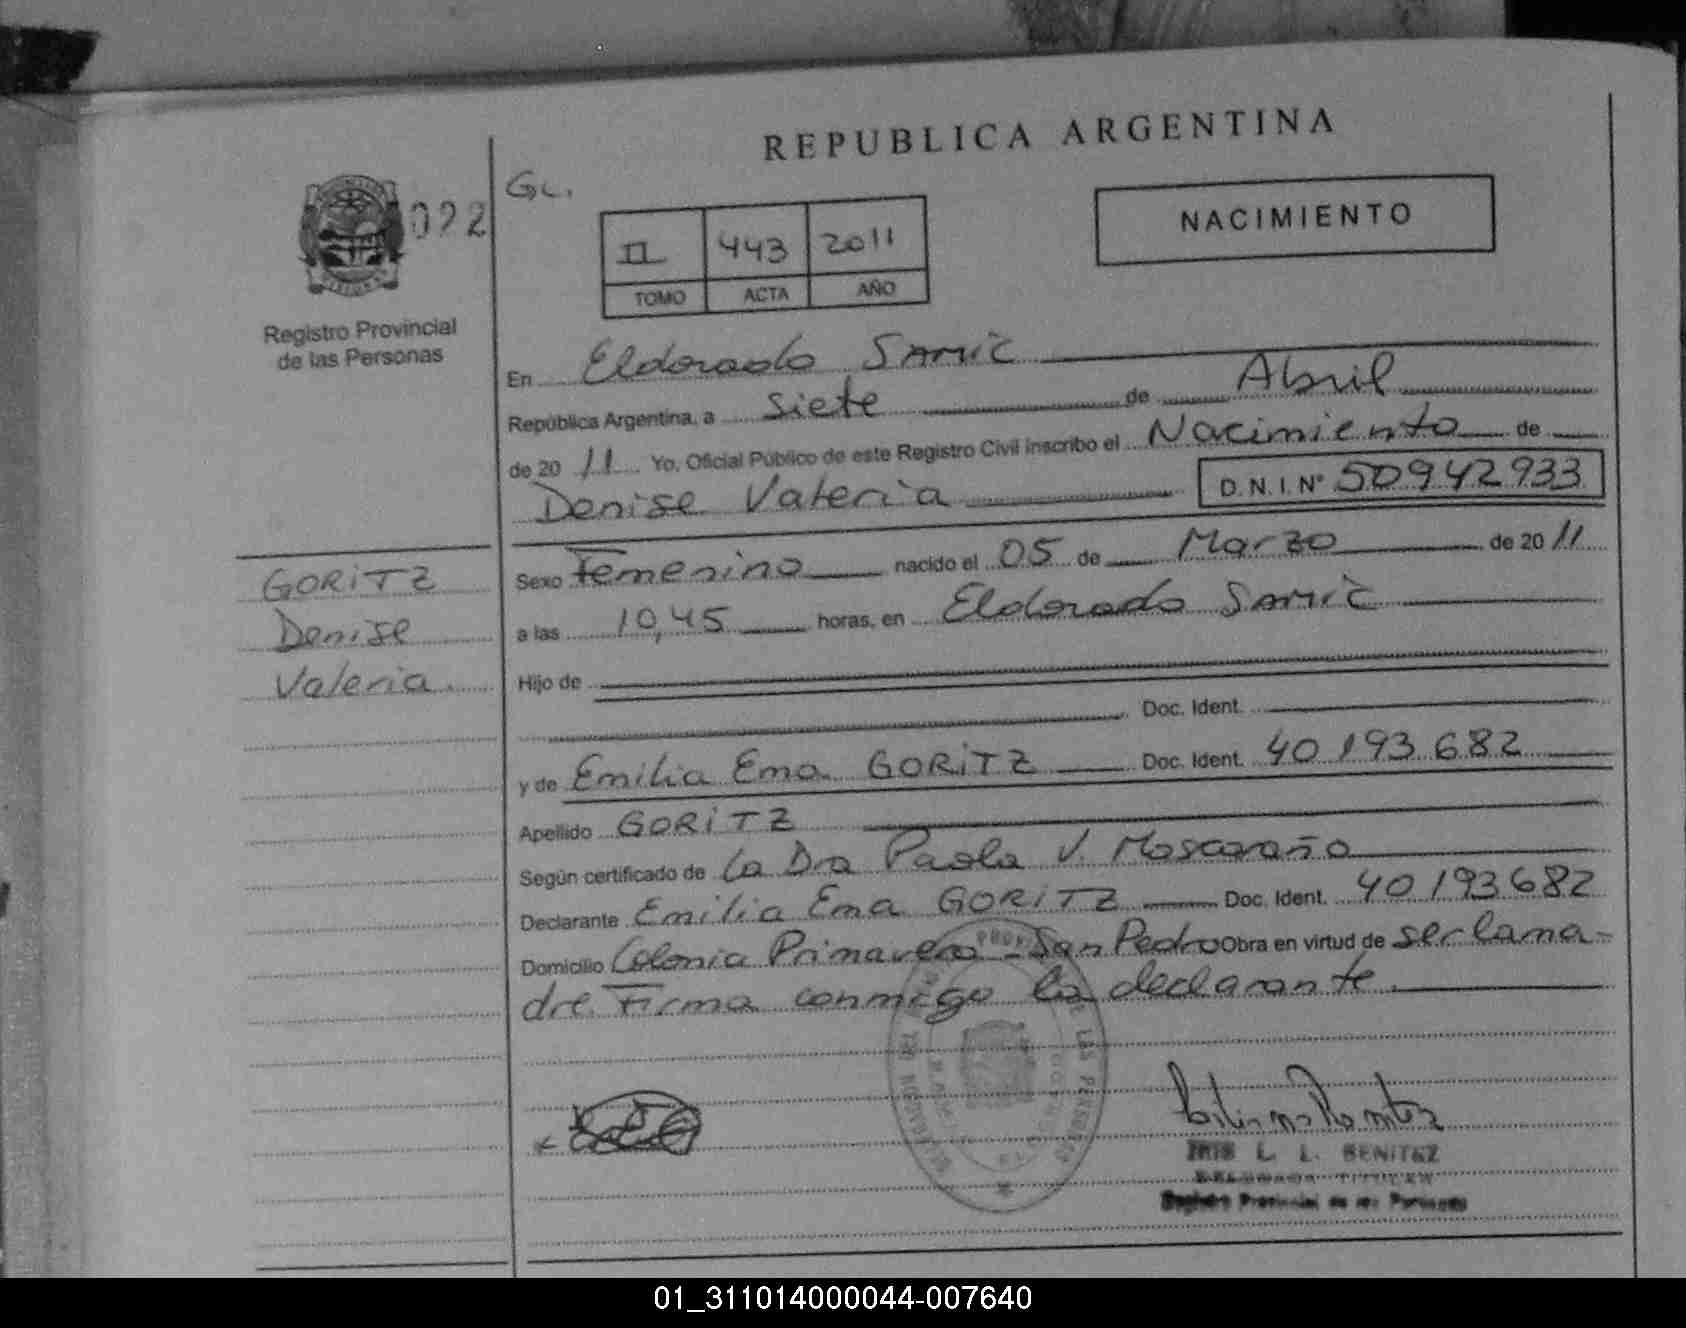 REPUBLICA ARGENTINA
022
GL.
NACIMIENTO
II 443 2011
TOMO ACTA AÑO
Registro Provincial
de las Personas
En Eldorado Samic
República Argentina, a siete de Abril
de 2011 Yo, Oficial Público de este Registro Civil inscribo el Nacimiento de
Denise Valeria D.N.I.Nº 50942933
GORITZ
Denise
Valeria.
Sexo Femenino nacido el 05 de Marzo de 2011
a las 10,45 horas, en Eldorado Samic
Hijo de
Doc. Ident.
y de Emilia Ema GORITZ Doc. Ident. 40193682
Apellido GORITZ
Según certificado de La Dra Paola V. Moscaraño
Declarante Emilia Ema GORITZ Doc. Ident. 40193682
Domicilio Colonia Primavera - San Pedro Obra en virtud de ser la ma-
dre. Firma conmigo la declarante.
L. L. BENITEZ
Registro Provincial de las Personas
01_311014000044-007640